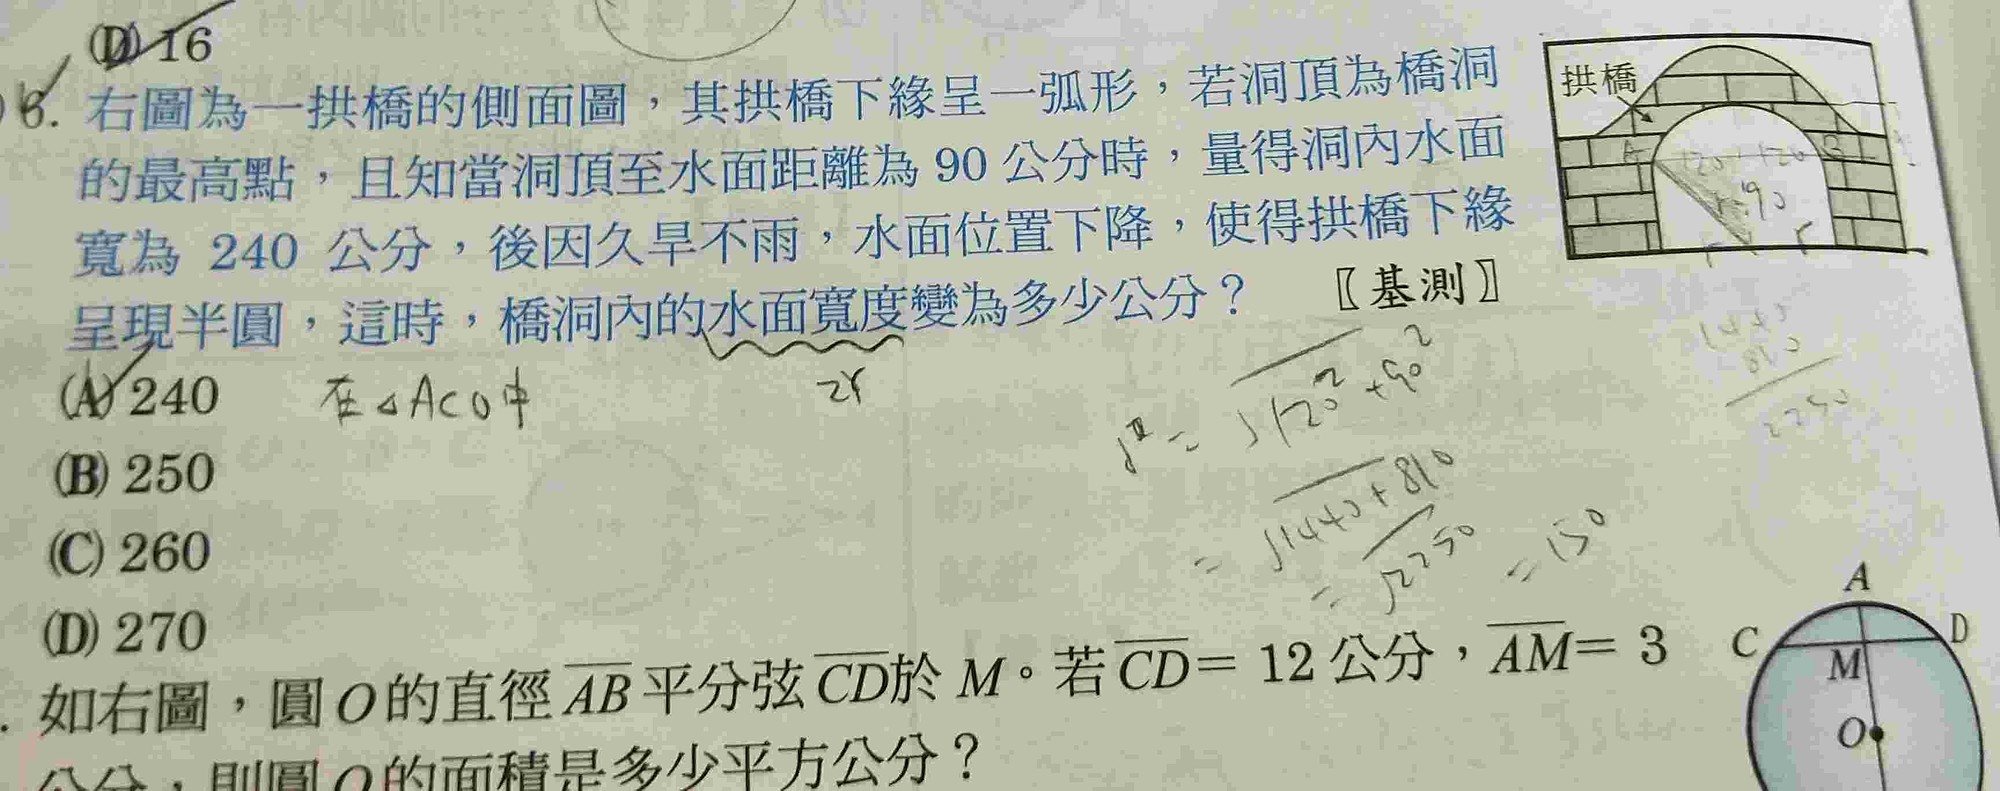 (D) 16
6. 右圖為一拱橋的側面圖，其拱橋下緣呈一弧形，若洞頂為橋洞
拱橋
的最高點，且知當洞頂至水面距離為 90 公分時，量得洞內水面
120 120
90
寬為 240 公分，後因久旱不雨，水面位置下降，使得拱橋下緣
r r
呈現半圓，這時，橋洞內的水面寬度變為多少公分？ 〖基測〗
(A) 240 在△ACO中 2r
= √120²+90²
= √1440+810
= √2250 = 150
1440
810
2250
(B) 250
(C) 260
(D) 270
如右圖，圓 O 的直徑 AB 平分弦 CD 於 M。若 CD = 12 公分，AM = 3
公分，則圓 O 的面積是多少平方公分？
A
C D
M
O